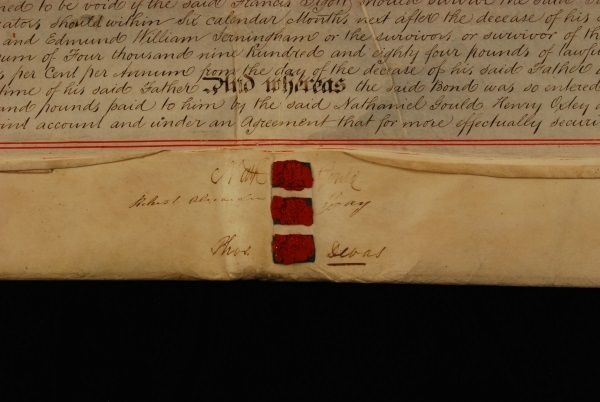 ned to be void if the said Francis Lyon should survive the said
cutors should within Six calendar Months next after the decease of his s
and Edmund William Jerningham or the survivors or survivor of th
um of Four thousand nine hundred and eighty four pounds of lawfu
s per Cent per Annum from the day of the decease of his said Father a
time of his said Father And whereas the said Bond was so entered
and pounds paid to him by the said Nathaniel Gould Henry Oxley a
oint account and under an Agreement that for more effectually securi
Nath Gould
Robert Alexander Gray
Thos Devas